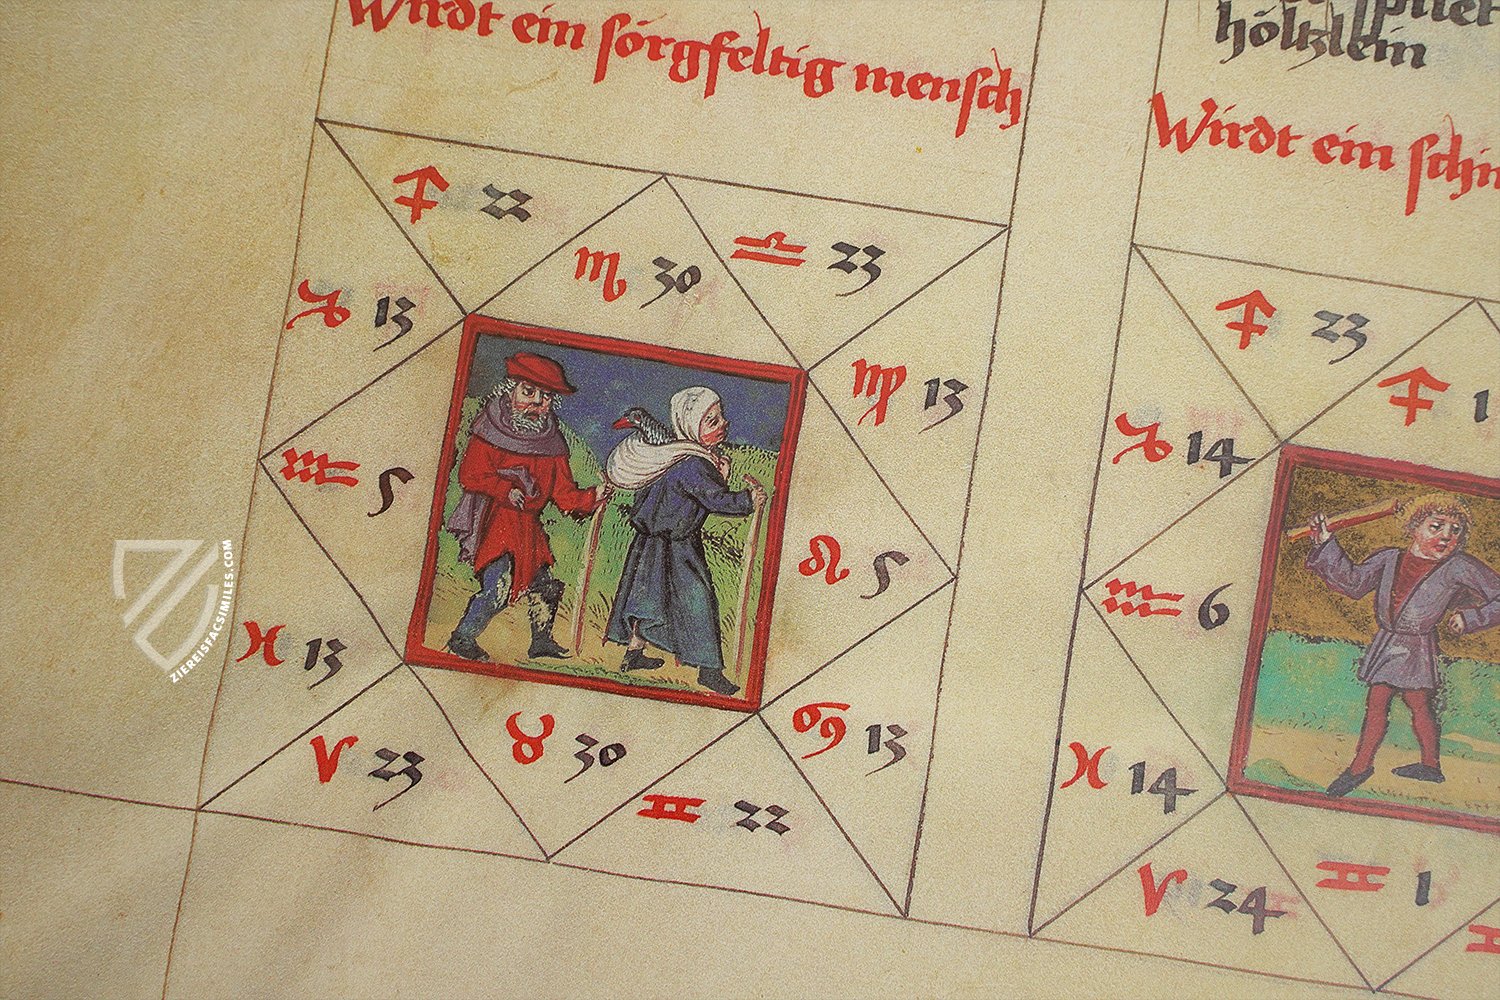 Wirdt ein sorgfeltig mensch
♐ 22
♏ 30
♎ 23
♑ 13
♍ 13
♒ 5
♌ 5
♓ 13
♋ 13
♈ 23
♉ 30
♊ 22
höltzlein
Wirdt ein
♐ 23
♐ 1
♑ 14
♒ 6
♓ 14
♈ 24
♊ 1
ZIEREISFACSIMILES.COM